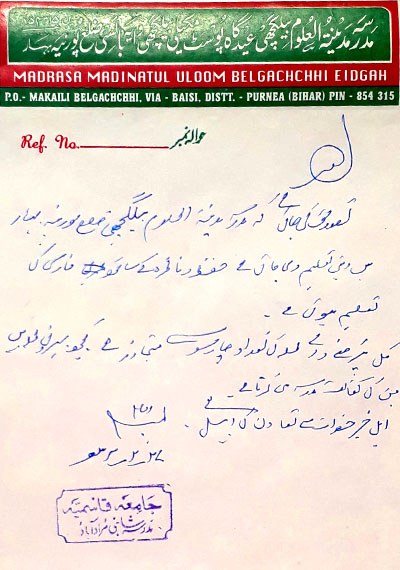 مدرسہ مدینۃ العلوم بیلگچھی عیدگاہ پوسٹ مکیلی بیلگچھی
MADRASA MADINATUL ULOOM BELGACHCHHI EIDGAH
P.O.- MAKAILI BELGACHCHHI, VIA - BAISI, DISTT. - PURNEA (BIHAR) PIN - 854 315
Ref. No. حوالہ نمبر
تصدیق کی جاتی ہے کہ مدرسہ مدینۃ العلوم بیلگچھی ضلع پورنیہ بہار
میں دینی تعلیم دی جاتی ہے حفظ و ناظرہ کے ساتھ فارسی کی
تعلیم ہوتی ہے۔
کل پڑھنے والے طلبہ کی تعداد چار سو سے متجاوز ہے۔ کچھ بیرونی طلبہ ہیں
جن کی کفالت مدرسہ ہی کرتا ہے۔
اہل خیر حضرات سے تعاون کی اپیل ہے۔
جامعہ قاسمیہ
مدرسہ شاہی مرادآباد